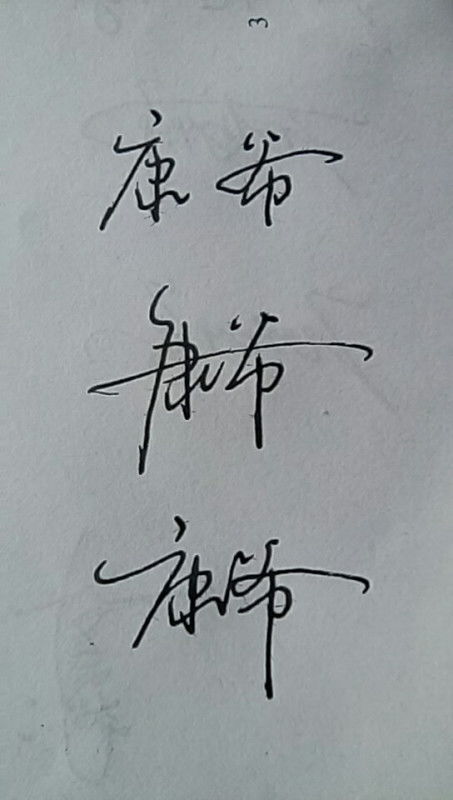 3
康希
康希
康希